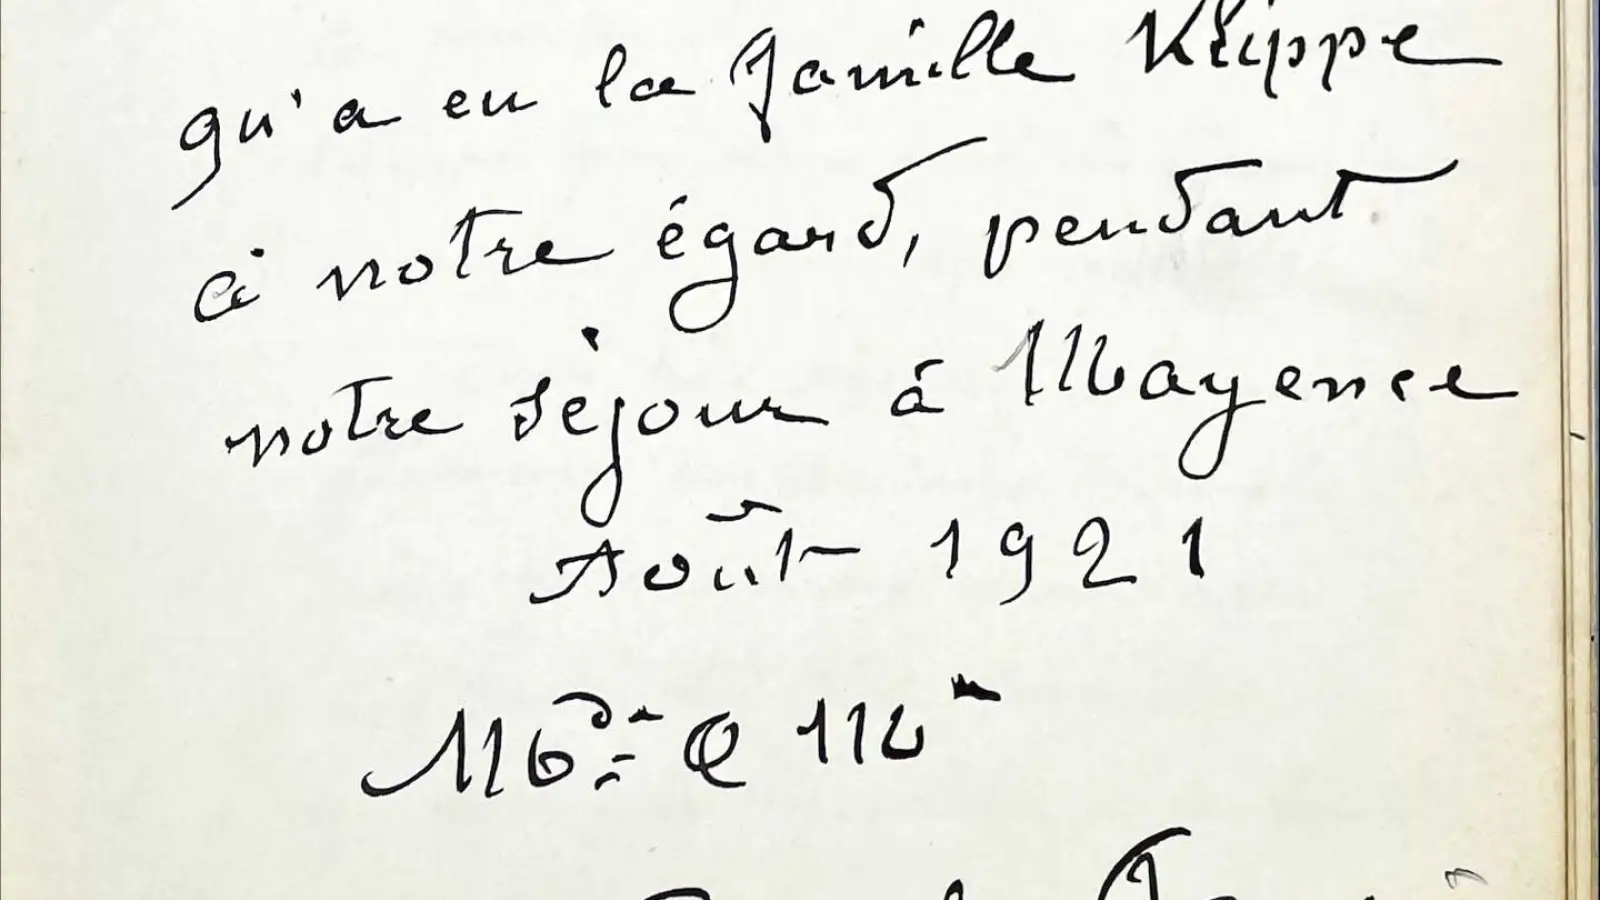 qu'a eu la famille Krippe
à notre égard, pendant
notre séjour à Mayence
Août 1921
Md. & Mm